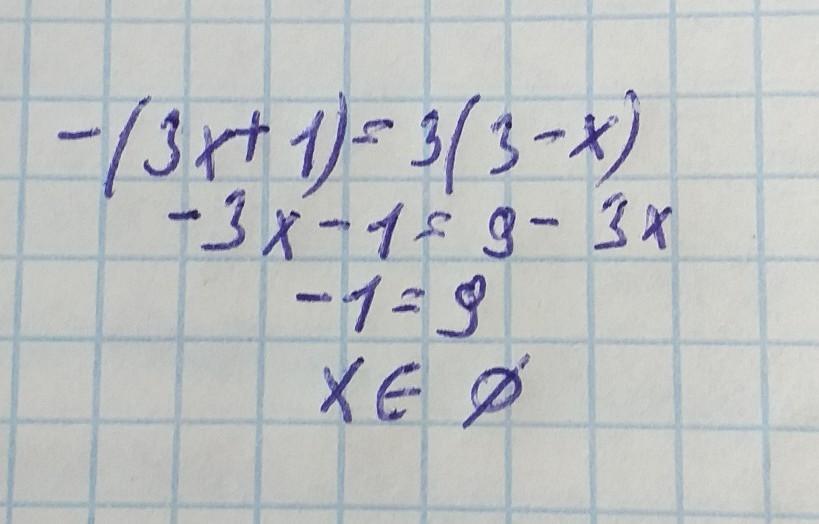 -(3x+1)=3(3-x)
-3x-1=9-3x
-1=9
x∈∅